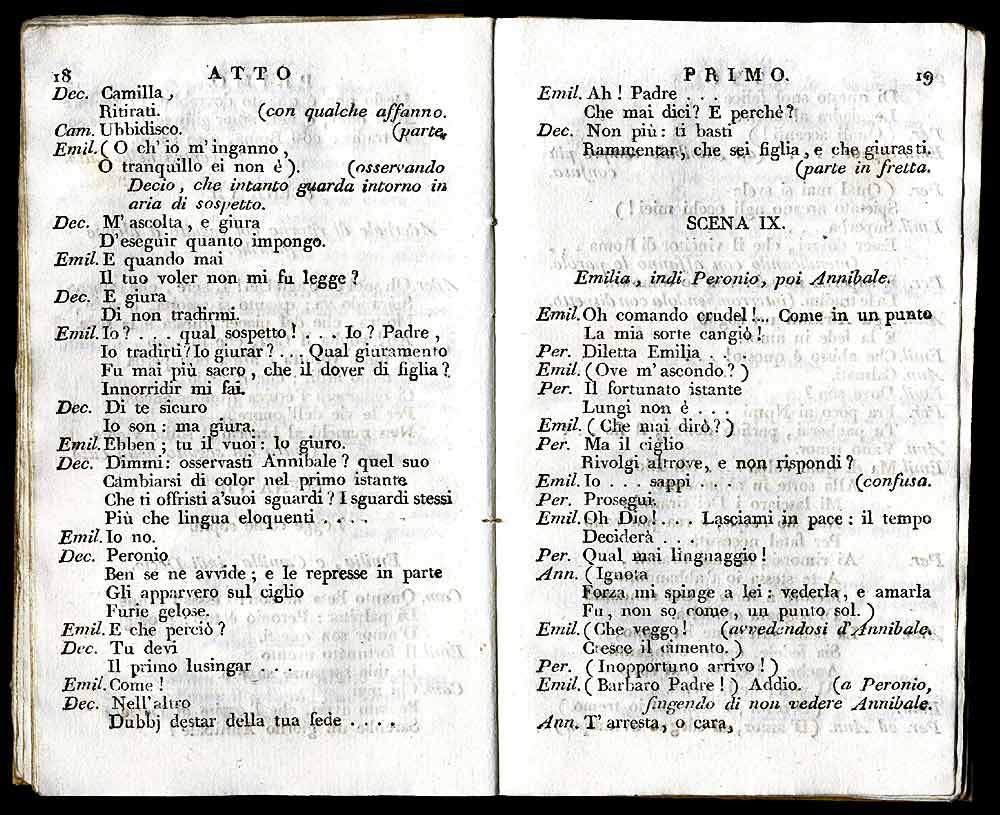 18 ATTO
Dec. Camilla,
Ritirati. (con qualche affanno.
Cam. Ubbidisco. (parte.
Emil. ( O ch' io m' inganno,
O tranquillo ei non è ). (osservando
Decio, che intanto guarda intorno in
aria di sospetto.
Dec. M' ascolta, e giura
D'eseguir quanto impongo.
Emil. E quando mai
Il tuo voler non mi fu legge?
Dec. E giura
Di non tradirmi.
Emil. Io? . . . qual sospetto! . . . Io? Padre,
Io tradirti? Io giurar? . . . Qual giuramento
Fu mai più sacro, che il dover di figlia?
Innorridir mi fai.
Dec. Di te sicuro
Io son: ma giura.
Emil. Ebben; tu il vuoi: lo giuro.
Dec. Dimmi: osservasti Annibale? quel suo
Cambiarsi di color nel primo istante
Che ti offristi a'suoi sguardi? I sguardi stessi
Più che lingua eloquenti . . . .
Emil. Io no.
Dec. Peronio
Ben se ne avvide; e le represse in parte
Gli apparvero sul ciglio
Furie gelose.
Emil. E che perciò?
Dec. Tu devi
Il primo lusingar . . .
Emil. Come!
Dec. Nell'altro
Dubbj destar della tua fede . . . .
PRIMO. 19
Emil. Ah! Padre . . .
Che mai dici? E perchè?
Dec. Non più: ti basti
Rammentar, che sei figlia, e che giurasti.
(parte in fretta.
SCENA IX.
Emilia, indi Peronio, poi Annibale.
Emil. Oh comando crudel!... Come in un punto
La mia sorte cangiò!
Per. Diletta Emilia . .
Emil. (Ove m' ascondo?)
Per. Il fortunato istante
Lungi non è . . .
Emil. ( Che mai dirò? )
Per. Ma il ciglio
Rivolgi altrove, e non rispondi?
Emil. Io . . . sappi . . . (confusa.
Per. Prosegui.
Emil. Oh Dio! . . . Lasciami in pace: il tempo
Deciderà . . .
Per. Qual mai linguaggio!
Ann. ( Ignota
Forza mi spinge a lei: vederla, e amarla
Fu, non so come, un punto sol. )
Emil. (Che veggo! (avvedendosi d'Annibale.
Cresce il cimento. )
Per. ( Inopportuno arrivo! )
Emil. ( Barbaro Padre! ) Addio. (a Peronio,
fingendo di non vedere Annibale.
Ann. T' arresta, o cara,